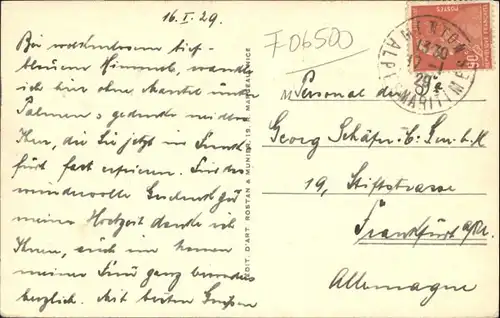 16. I. 29.
Bei wolkenlosem tief-
blauem Himmel, wandle
ich hier ohne Mantel unter
Palmen u. gedenke mitleidig
Ihrer, die Sie jetzt in Frank
furt fast erfrieren. Für das
wundervolle Geschenk zu
meiner Hochzeit danke ich
Ihnen, auch im Namen
meiner Frau ganz besonders
herzlich. Mit besten Grüßen
EDIT. D'ART ROSTAN & MUNIER, 19, R. MARCEAU, NICE
F 06500
POSTES
MENTON
13 30
17 - 1
29
ALPES MARITIMES
Personal der
Georg Schäfer & C. G.m.b.H
19, Stiftstrasse
Frankfurt a/M.
Allemagne